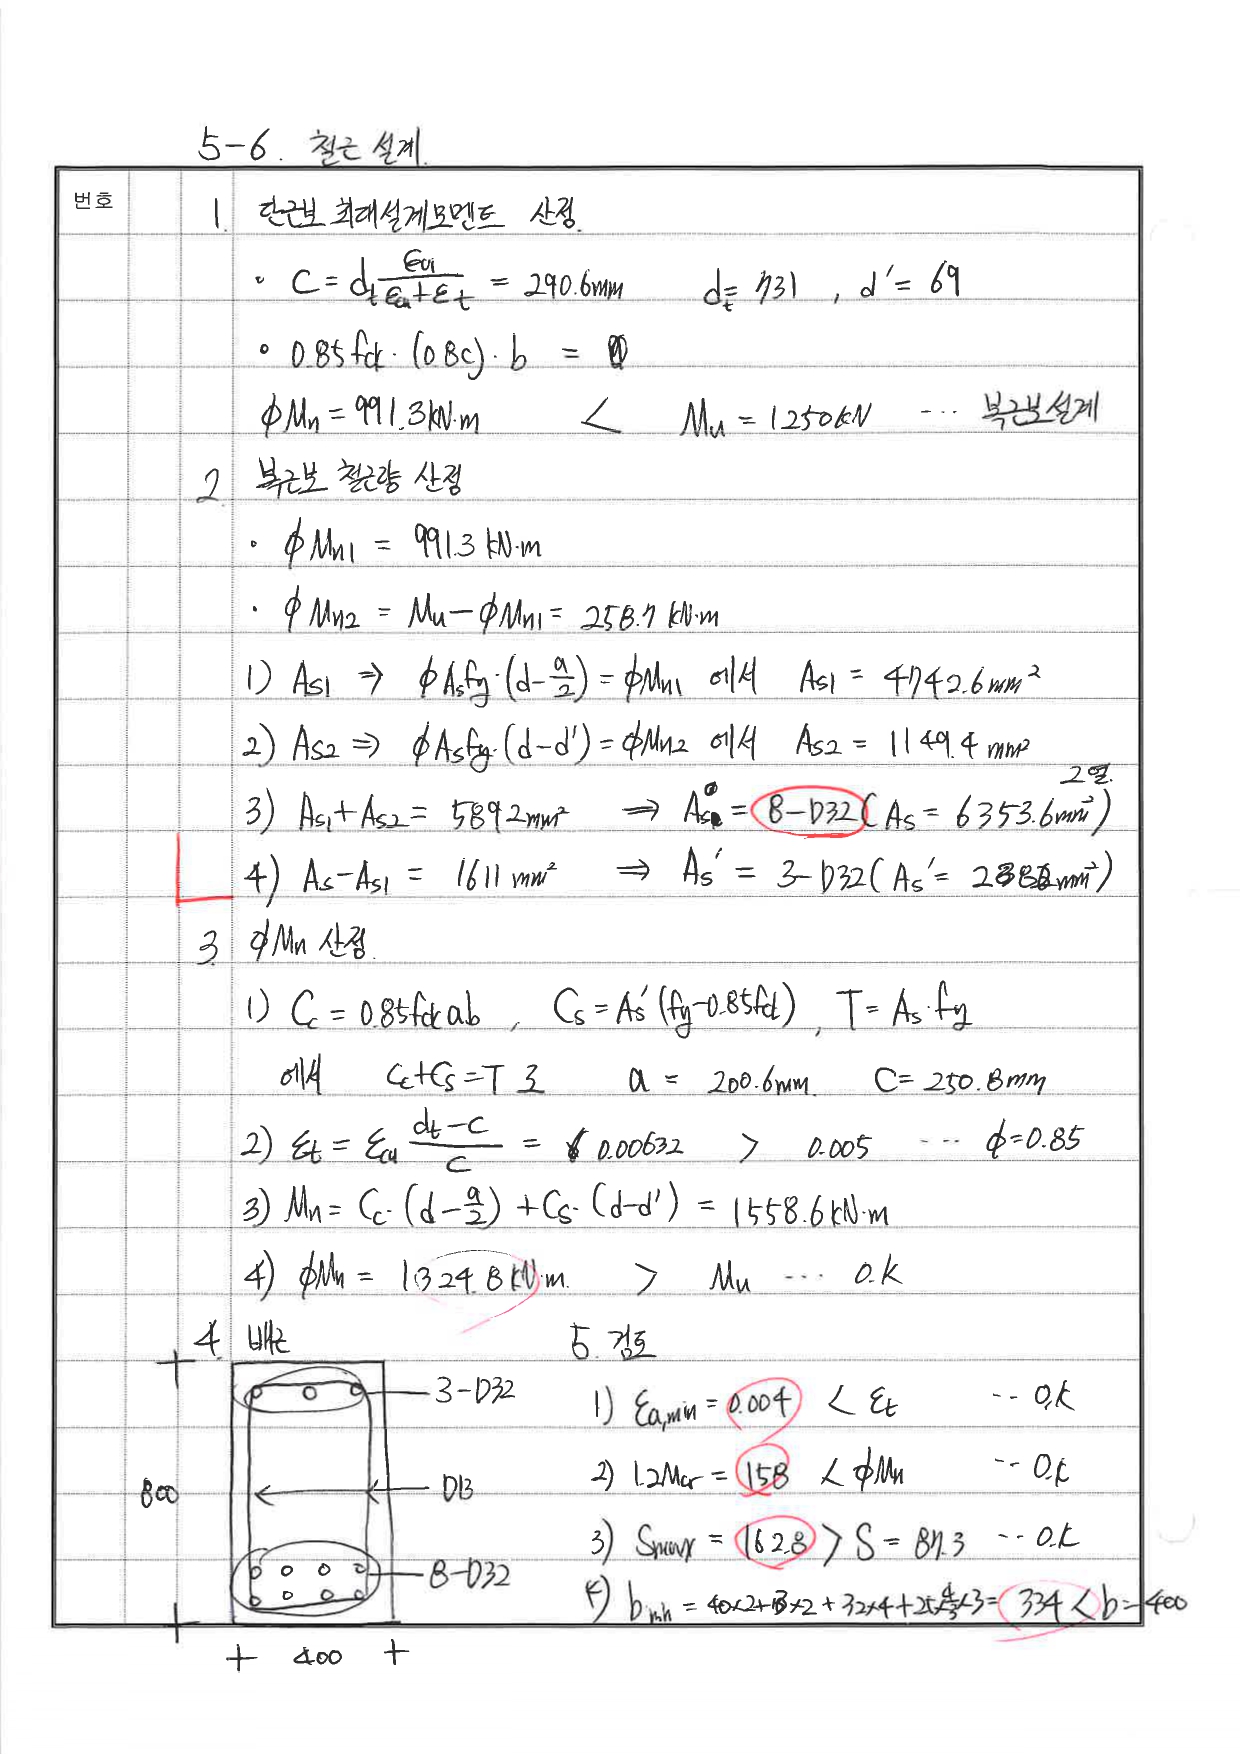 5-6. 철근 설계.
번호
1. 단근보 최대설계모멘트 산정.
· C = dt εcu/(εcu+εt) = 290.6mm dt = 731 , d' = 69
· 0.85fck·(0.8c)·b =
φMn = 991.3kN·m < Mu = 1250kN ··· 복근보설계
2. 복근보 철근량 산정
· φMn1 = 991.3 kN·m
· φMn2 = Mu - φMn1 = 258.7 kN·m
1) As1 ⇒ φAsfy·(d-a/2) = φMn1 에서 As1 = 4742.6mm²
2) As2 ⇒ φAsfy·(d-d') = φMn2 에서 As2 = 1149.4mm²
2열.
3) As1+As2 = 5892mm² ⇒ As = 8-D32(As = 6353.6mm²)
4) As-As1 = 1611mm² ⇒ As' = 3-D32(As' = mm²)
3. φMn 산정.
1) Cc = 0.85fckab , Cs = As'(fy-0.85fck) , T = As·fy
에서 Cc+Cs=T 로 a = 200.6mm. C = 250.8mm
2) εt = εcu (dt-c)/c = 0.00632 > 0.005 ··· φ=0.85
3) Mn = Cc·(d-a/2) + Cs·(d-d') = 1558.6kN·m
4) φMn = 1324.8kN·m. > Mu ··· O.K
4. 배근
3-D32
D13
8-D32
800
400
5. 검토
1) εa,min = 0.004 < εt ·· O.K
2) 1.2Mcr = 158 < φMn ·· O.K
3) Smax = 162.8 > S = 87.3 ·· O.K
4) bmin = 40×2+13×2+32×4+25×4/3×3 = 334 < b = 400